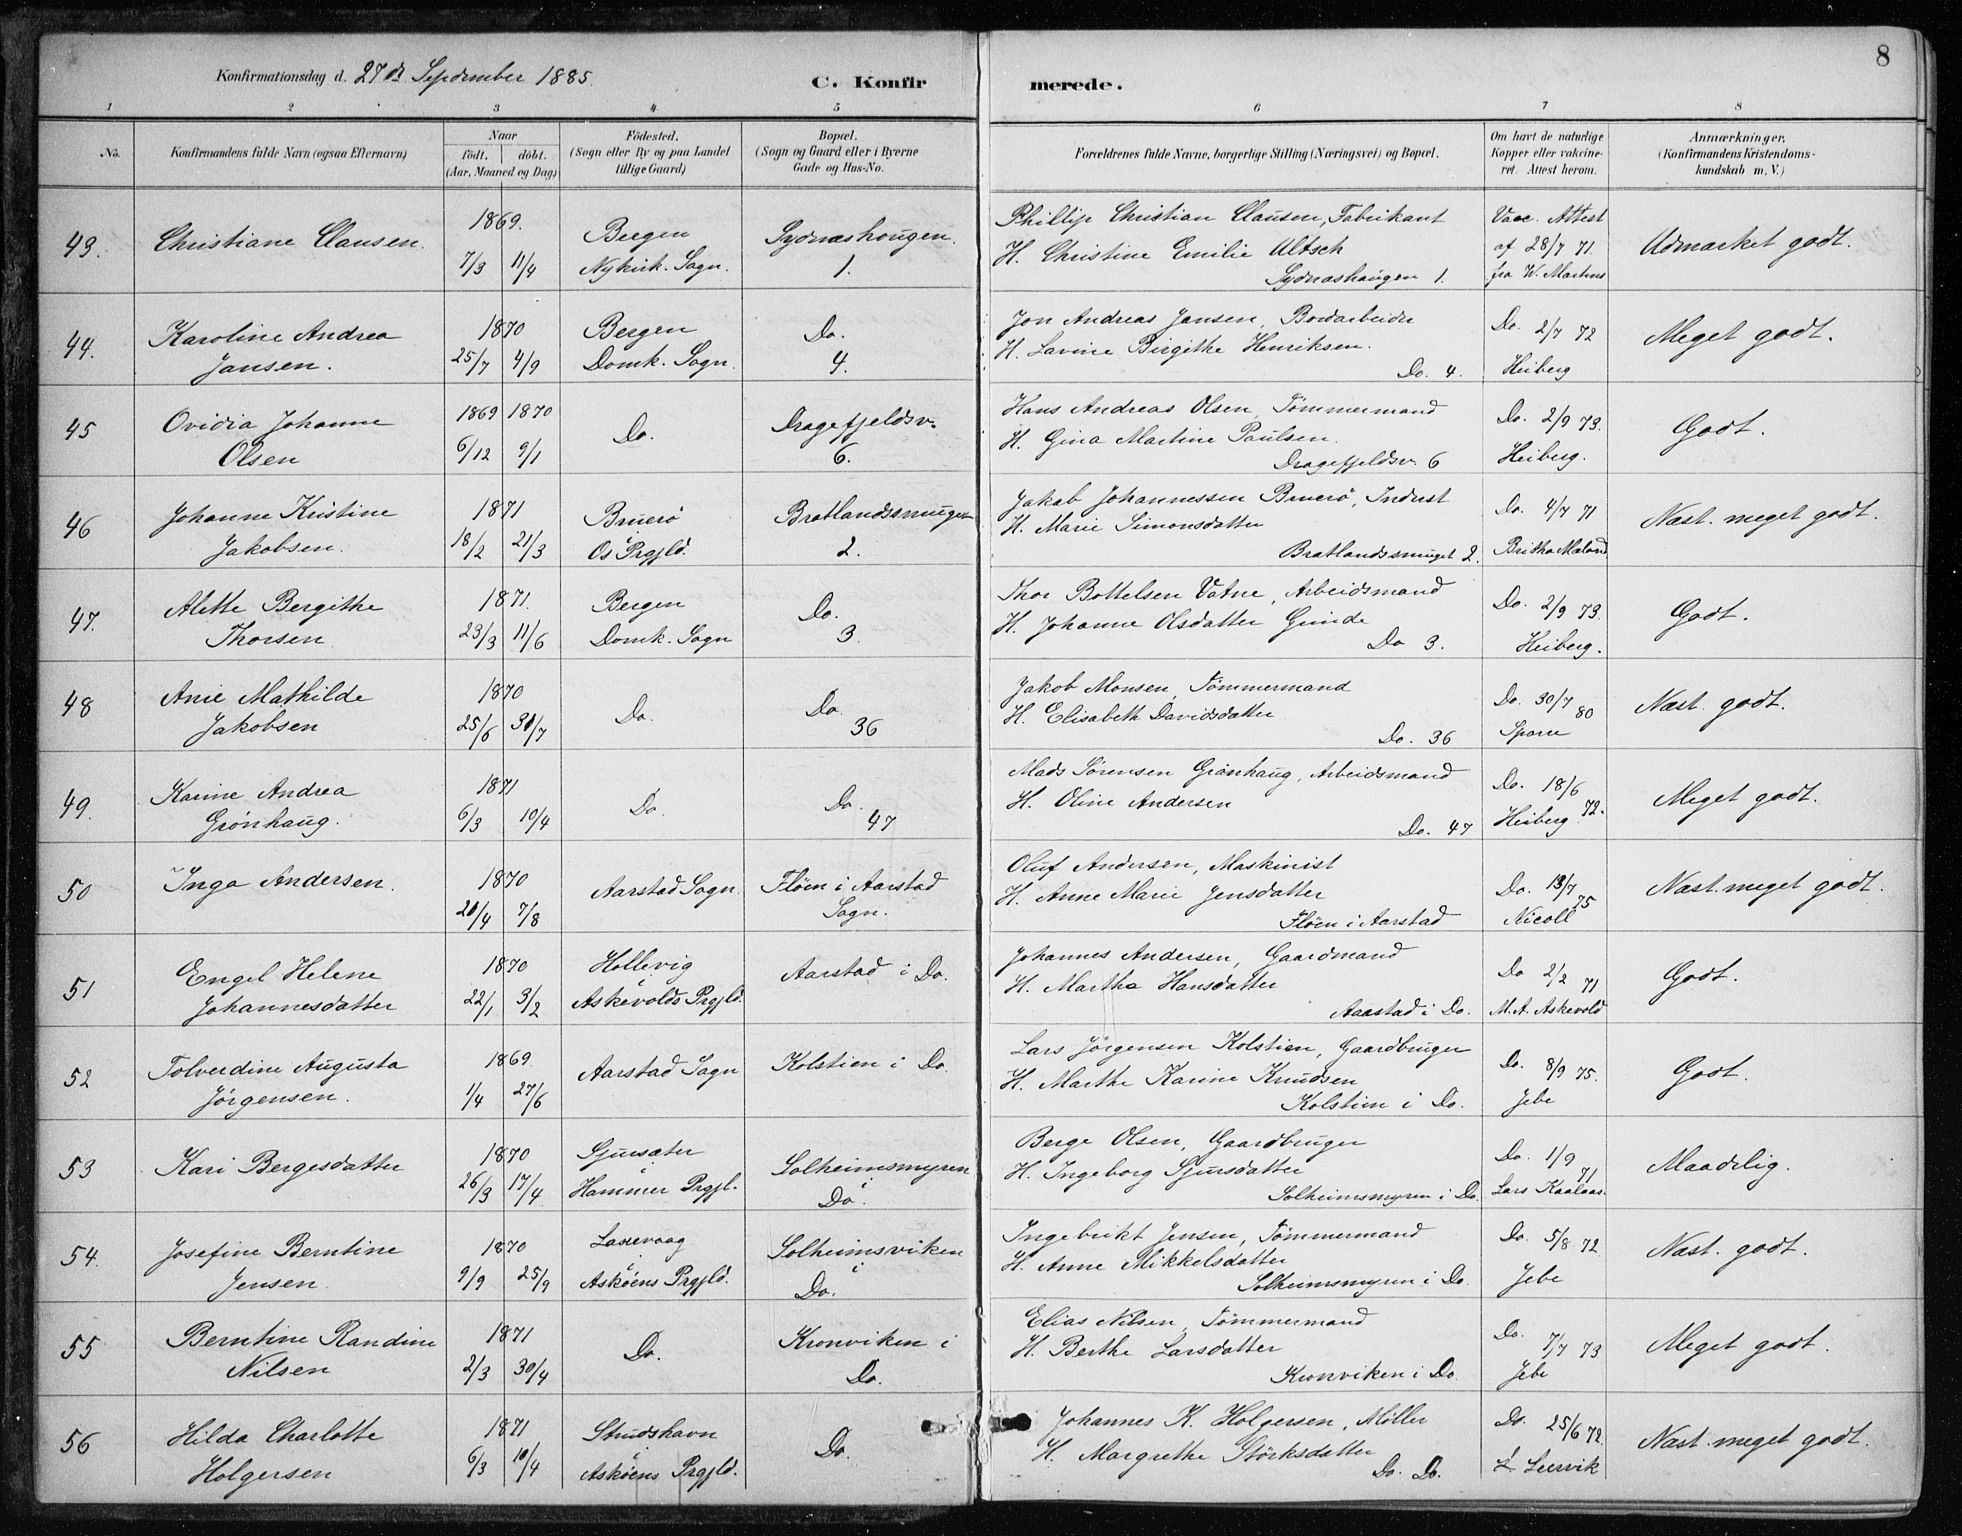 8
Konfirmationsdag d. 27de September 1885.
C. Konfirmerede.
1 2 3 4 5 6 7 8
No. Konfirmandens fulde Navn (ogsaa Efternavn) Naar födt. döbt. (Aar, Maaned og Dag) Födested. (Sogn eller By og paa Landet tillige Gaard) Bopæl. (Sogn og Gaard eller i Byerne Gade og Hus-No. Forældrenes fulde Navne, borgerlige Stilling (Næringsvei) og Bopæl. Om havt de naturlige Kopper eller vakcineret. Attest herom. Anmærkninger, (Konfirmandens Kristendomskundskab m. V.)
43. Christiane Clausen. 1869. 7/3 11/4 Bergen Nykirk. Sogn. Sydnæshougen. 1. Phillip Christian Clausen, Fabrikant
H. Christine Emilie Altsch
Sydnæshaugen 1. Vacc. Attest af 28/7 71. fra W. Martens Udmærket godt.
44. Karoline Andrea Jansen. 1870 25/7 4/9 Bergen Domk. Sogn. Do. 4. Jon Andreas Jansen, Bordarbeider
H. Lavine Birgithe Henriksen.
Do. 4. Do. 2/7 72 Heiberg Meget godt.
45 Ovidia Johanne Olsen 1869 1870 6/12 9/1 Do. Dragefjeldsv. 6. Hans Andreas Olsen, Tömmermand
H. Gina Martine Paulsen.
Dragefjeldsv. 6 Do. 2/9 73. Heiberg. Godt.
46 Johanne Kristine Jakobsen. 1871 18/2 21/3 Bruerö i Os Prgjld. Bratlandssmuget 2. Jakob Johannessen Bruerö, Indust
H. Marie Simonsdatter
Bratlandssmuget 2. Do. 4/7 71 Britha Mæland Næst. meget godt.
47. Alette Bergithe Thorsen 1871. 23/3 11/6 Bergen Domk. Sogn Do. 3. Thor Bottelsen Vatne, Arbeidsmand
H. Johanne Olsdatter Grinde
Do 3. Do. 2/9 73. Heiberg. Godt.
48 Anie Mathilde Jakobsen 1870 25/6 31/7 Do. Do. 36 Jakob Monsen, Tömmermand
H. Elisabeth Davidsdatter
Do. 36 Do. 30/7 80 Sparre Næst. godt.
49. Karine Andrea Grönhaug. 1871 6/3 10/4 Do. Do. 47 Mads Sörensen Grönhaug, Arbeidsmand
H. Oline Andersen
Do. 47 Do. 18/6 72. Heiberg Meget godt.
50 Inga Andersen. 1870 20/4 7/8 Aarstad Sogn. Flöen i Aarstad Sogn. Oluf Andersen, Maskinist
H. Anne Marie Jensdatter
Flöen i Aarstad Do. 13/7 75 Nicoll Næst. meget godt.
51 Engel Helene Johannesdatter 1870 22/1 3/2 Hollevig i Askevolds Prgjld. Aarstad i Do. Johannes Andersen, Gaardmand
H. Martha Hansdatter
Aarstad i Do. Do 2/2 71 M.A. Askevold Godt.
52 Tolverdine Augusta Jörgensen. 1869 1/4 27/6 Aarstad Sogn Kolstien i Do. Lars Jörgensen Kolstien, Gaardbruger
H. Marthe Karine Knudsen
Kolstien i Do. Do. 8/9 75. Jebe Godt.
53 Kari Bergesdatter 1870 26/3 17/4 Gjursæter i Hammer Prgjl. Solheimsmyren i Do. Berge Olsen, Gaardbruger
H. Ingeborg Sjursdatter
Solheimsmyren i Do. Do. 1/9 71 Lars Kaalaas. Maadelig.
54. Josefine Berntine Jensen. 1870 9/9 25/9 Laxevaag i Asköens Prgjld. Solheimsviken i Do. Ingebrikt Jensen, Tömmermand
H. Anne Mikkelsdatter
Solheimsmyren i Do. Do. 5/8 72 Jebe Næst. godt.
55 Berntine Randine Nilsen 1871 2/3 30/4 Do. Kronviken i Do. Elias Nilsen, Tömmermand
H. Berthe Larsdatter
Kronviken i Do. Do. 7/7 73 Jebe Meget godt.
56 Hilda Charlotte Holgersen 1871 6/3 10/4 Strudshavn i Asköens Prgjld. Do. Johannes K. Holgersen, Möller
H. Margrethe Störksdatter
Do. Do. Do. 25/6 72. L Leervik Næst. meget godt.